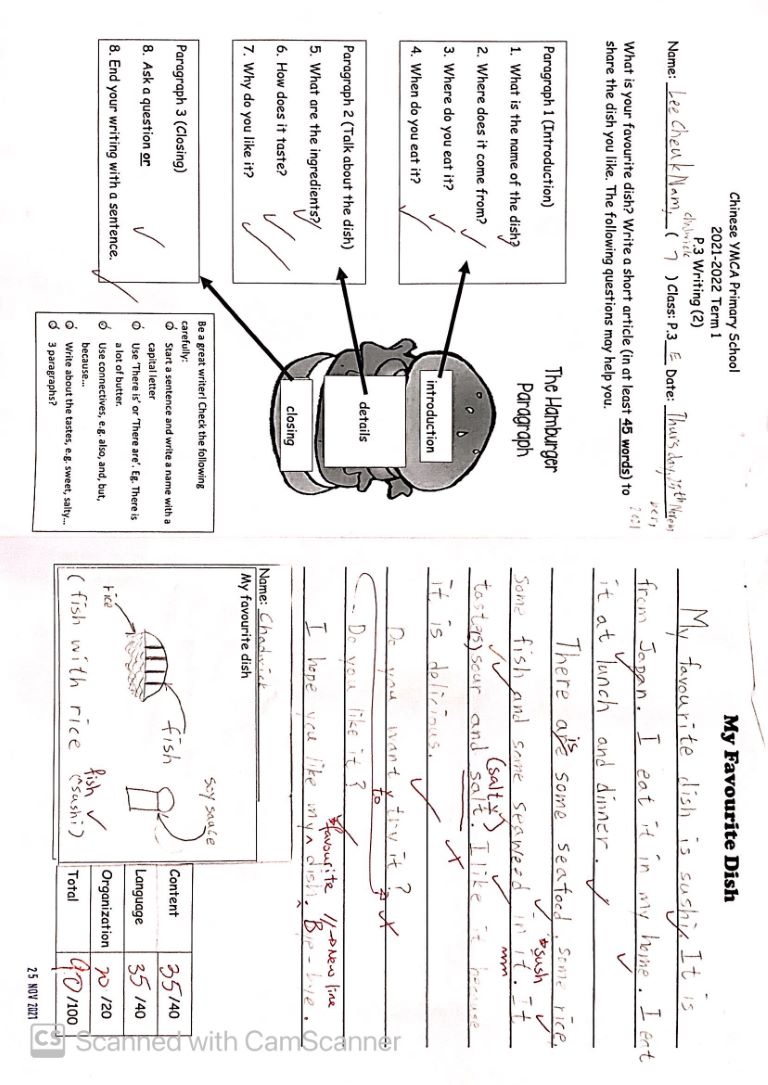 Chinese YMCA Primary School
2021-2022 Term 1
P.3 Writing (2)
Name: Lee Cheuk Nam, Chadwick ( 7 ) Class: P.3 E Date: Thursday, 25th November, 2021
What is your favourite dish? Write a short article (in at least 45 words) to
share the dish you like. The following questions may help you.
The Hamburger
Paragraph
Paragraph 1 (Introduction)
1. What is the name of the dish?
2. Where does it come from?
3. Where do you eat it?
4. When do you eat it?
introduction
Paragraph 2 (Talk about the dish)
5. What are the ingredients?
6. How does it taste?
7. Why do you like it?
details
Paragraph 3 (Closing)
8. Ask a question or
8. End your writing with a sentence.
closing
Be a great writer! Check the following
carefully:
Start a sentence and write a name with a
capital letter
Use 'There is' or 'There are'. Eg. There is
a lot of butter.
Use connectives, e.g. also, and, but,
because...
Write about the tastes, e.g. sweet, salty...
3 paragraphs?
My Favourite Dish
My favourite dish is sushi. It is
from Japan. I eat it in my home. I eat
it at lunch and dinner.
is
There are some seafood, some rice,
*sush
some fish and some seaweed in it. It
(salty)
tast(es) sour and salt. I like it because
it is delicious.
to
Do you want try it?
Do you like it?
*favourite // → New line
I hope you like my dish. Bye-bye.
Name: Chadwick
My favourite dish
soy sauce
fish
rice
fish
(fish with rice (sushi)
Content 35/40
Language 35/40
Organization 20/20
Total 90/100
25 NOV 2021
CS Scanned with CamScanner